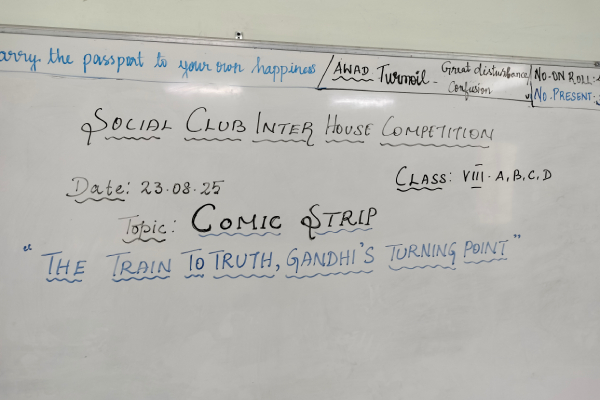 arry the passport to your own happiness / AWAD Turmoil - Great disturbance / No. ON ROLL:
Confusion No. PRESENT:
SOCIAL CLUB INTER HOUSE COMPETITION
CLASS: VIII - A, B, C, D
Date: 23.08.25
Topic: COMIC STRIP
"THE TRAIN TO TRUTH, GANDHI'S TURNING POINT"